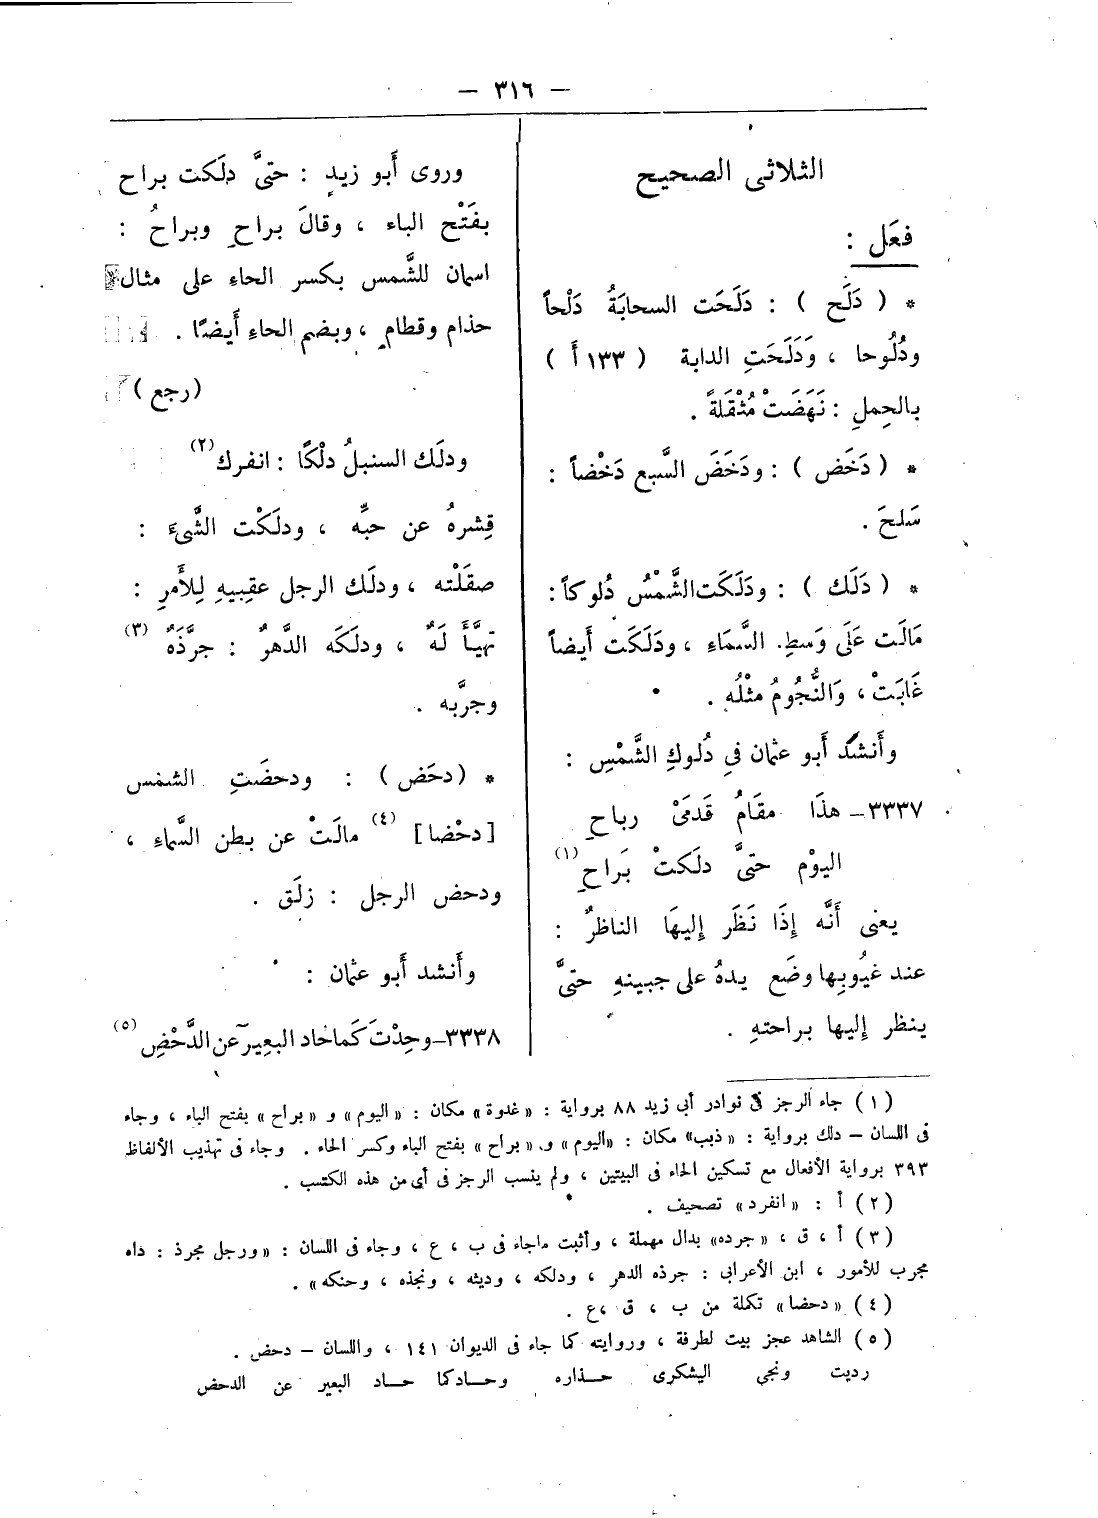 — ٣١٦ —
الثلاثى الصحيح
فعَل :
* ( دَلَح ) : دَلَحَت السحابَةُ دَلْحاً
ودُلُوحا ، وَدَلَحَتِ الدابة ( ١٣٣ أ )
بالحِملِ : نَهَضَتْ مُثْقلةً .
* ( دَحَض ) : ودَحَضَ السَّبع دَحْضاً :
سَلحَ .
* ( دَلَك ) : ودَلَكَت الشَّمْسُ دُلوكاً :
مَالَت عَلَى وَسطِ السَّمَاءِ ، ودَلَكَت أَيضاً
غَابَتْ ، وَالنُّجُومُ مثْلُه .
وأَنشد أَبو عثمان فى دُلوكِ الشَّمْسِ :
٣٣٣٧ – هذَا مقَامُ قَدمَىْ رباحِ
اليوْم حتىَّ دلَكتْ بَراحِ (١)
يعنى أَنَّه إِذَا نَظَر إِليهَا الناظرُ :
عند غيُوبِها وضَع يدهُ على جبينهِ حتىَّ
ينظر إِليها براحتهِ .
وروى أَبو زيدٍ : حتىَّ دلَكت براح
بفَتْح الباء ، وقالَ براحِ وبراحُ :
اسمان للشَّمس بكسر الحاءِ على مثال
حذام وقطامِ ، وبضم الحاءِ أَيضًا .
(رجع)
ودلَك السنبلُ دلْكًا : انفرك (٢)
قِشرهُ عن حبِّه ، ودلَكْت الشَّىءَ :
صقَلْته ، ودلَك الرجل عقِبيهِ لِلأَمرِ :
تهيَّأَ لَهُ ، ودلَكَه الدَّهرُ : جرَّذَهُ (٣)
وجرَّبه .
* (دحَض) : ودحضَتِ الشمس
[دحْضا] (٤) مالَتْ عن بطن السَّماءِ ،
ودحض الرجل : زلَق .
وأَنشد أَبو عثمان :
٣٣٣٨ – وحِدْتَ كَما حاد البعِير عن الدَّحْضِ (٥)
(١) جاء الرجز فى نوادر أبى زيد ٨٨ برواية : «غدوة» مكان : «اليوم» و «براح» بفتح الباء ، وجاء
فى اللسان – دلك برواية : «ذبب» مكان : «اليوم» و «براح» بفتح الباء وكسر الحاء . وجاء فى تهذيب الألفاظ
٣٩٣ برواية الأفعال مع تسكين الحاء فى البيتين ، ولم ينسب الرجز فى أى من هذه الكتب .
(٢) أ : «انفرد» تصحيف .
(٣) أ ، ق ، «جرده» بدال مهملة ، وأثبت ماجاء فى ب ، ع ، وجاء فى اللسان : «ورجل مجرذ : داه
مجرب للأمور ، ابن الأعرابى : جرذه الدهر ، ودلكه ، وديثه ، ونجذه ، وحنكه» .
(٤) «دحضا» تكملة من ب ، ق ،ع .
(٥) الشاهد عجز بيت لطرفة ، وروايته كما جاء فى الديوان ١٤١ ، واللسان – دحض .
رديت ونجى اليشكرى حـــذاره وحـــادكما حـــاد البعير عن الدحض